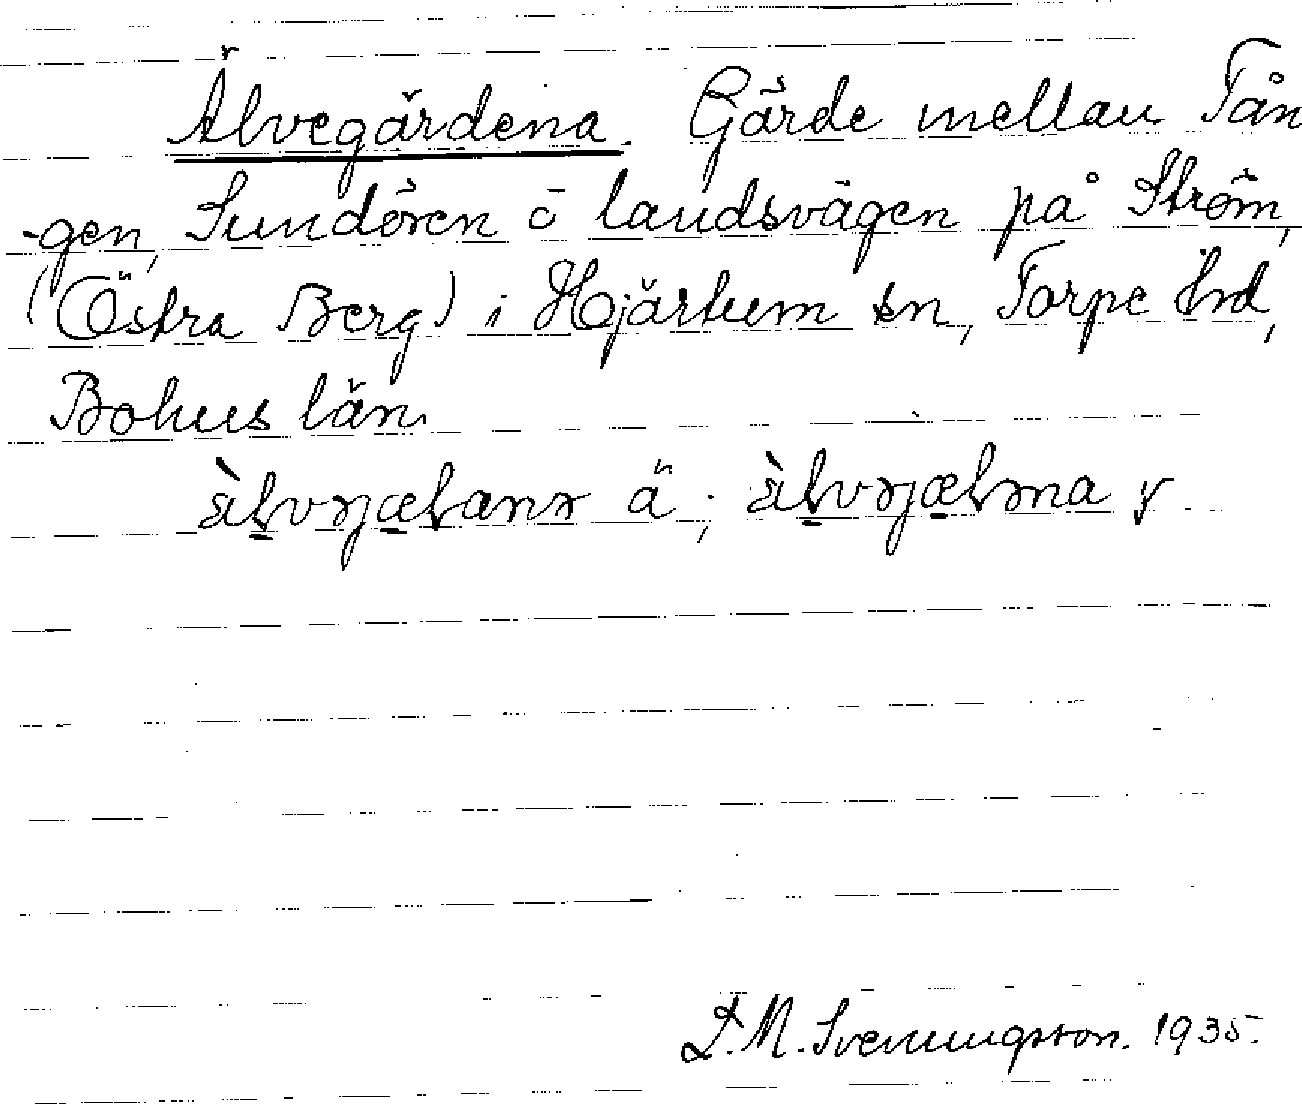 Älvegärdena. Gärde mellan Tån
-gen, Sundören ō landsvägen på Ström,
(Östra Berg) i Hjärtum sn, Torpe hrd,
Bohus län.
ä ;
L.M. Svenningsson. 1935.